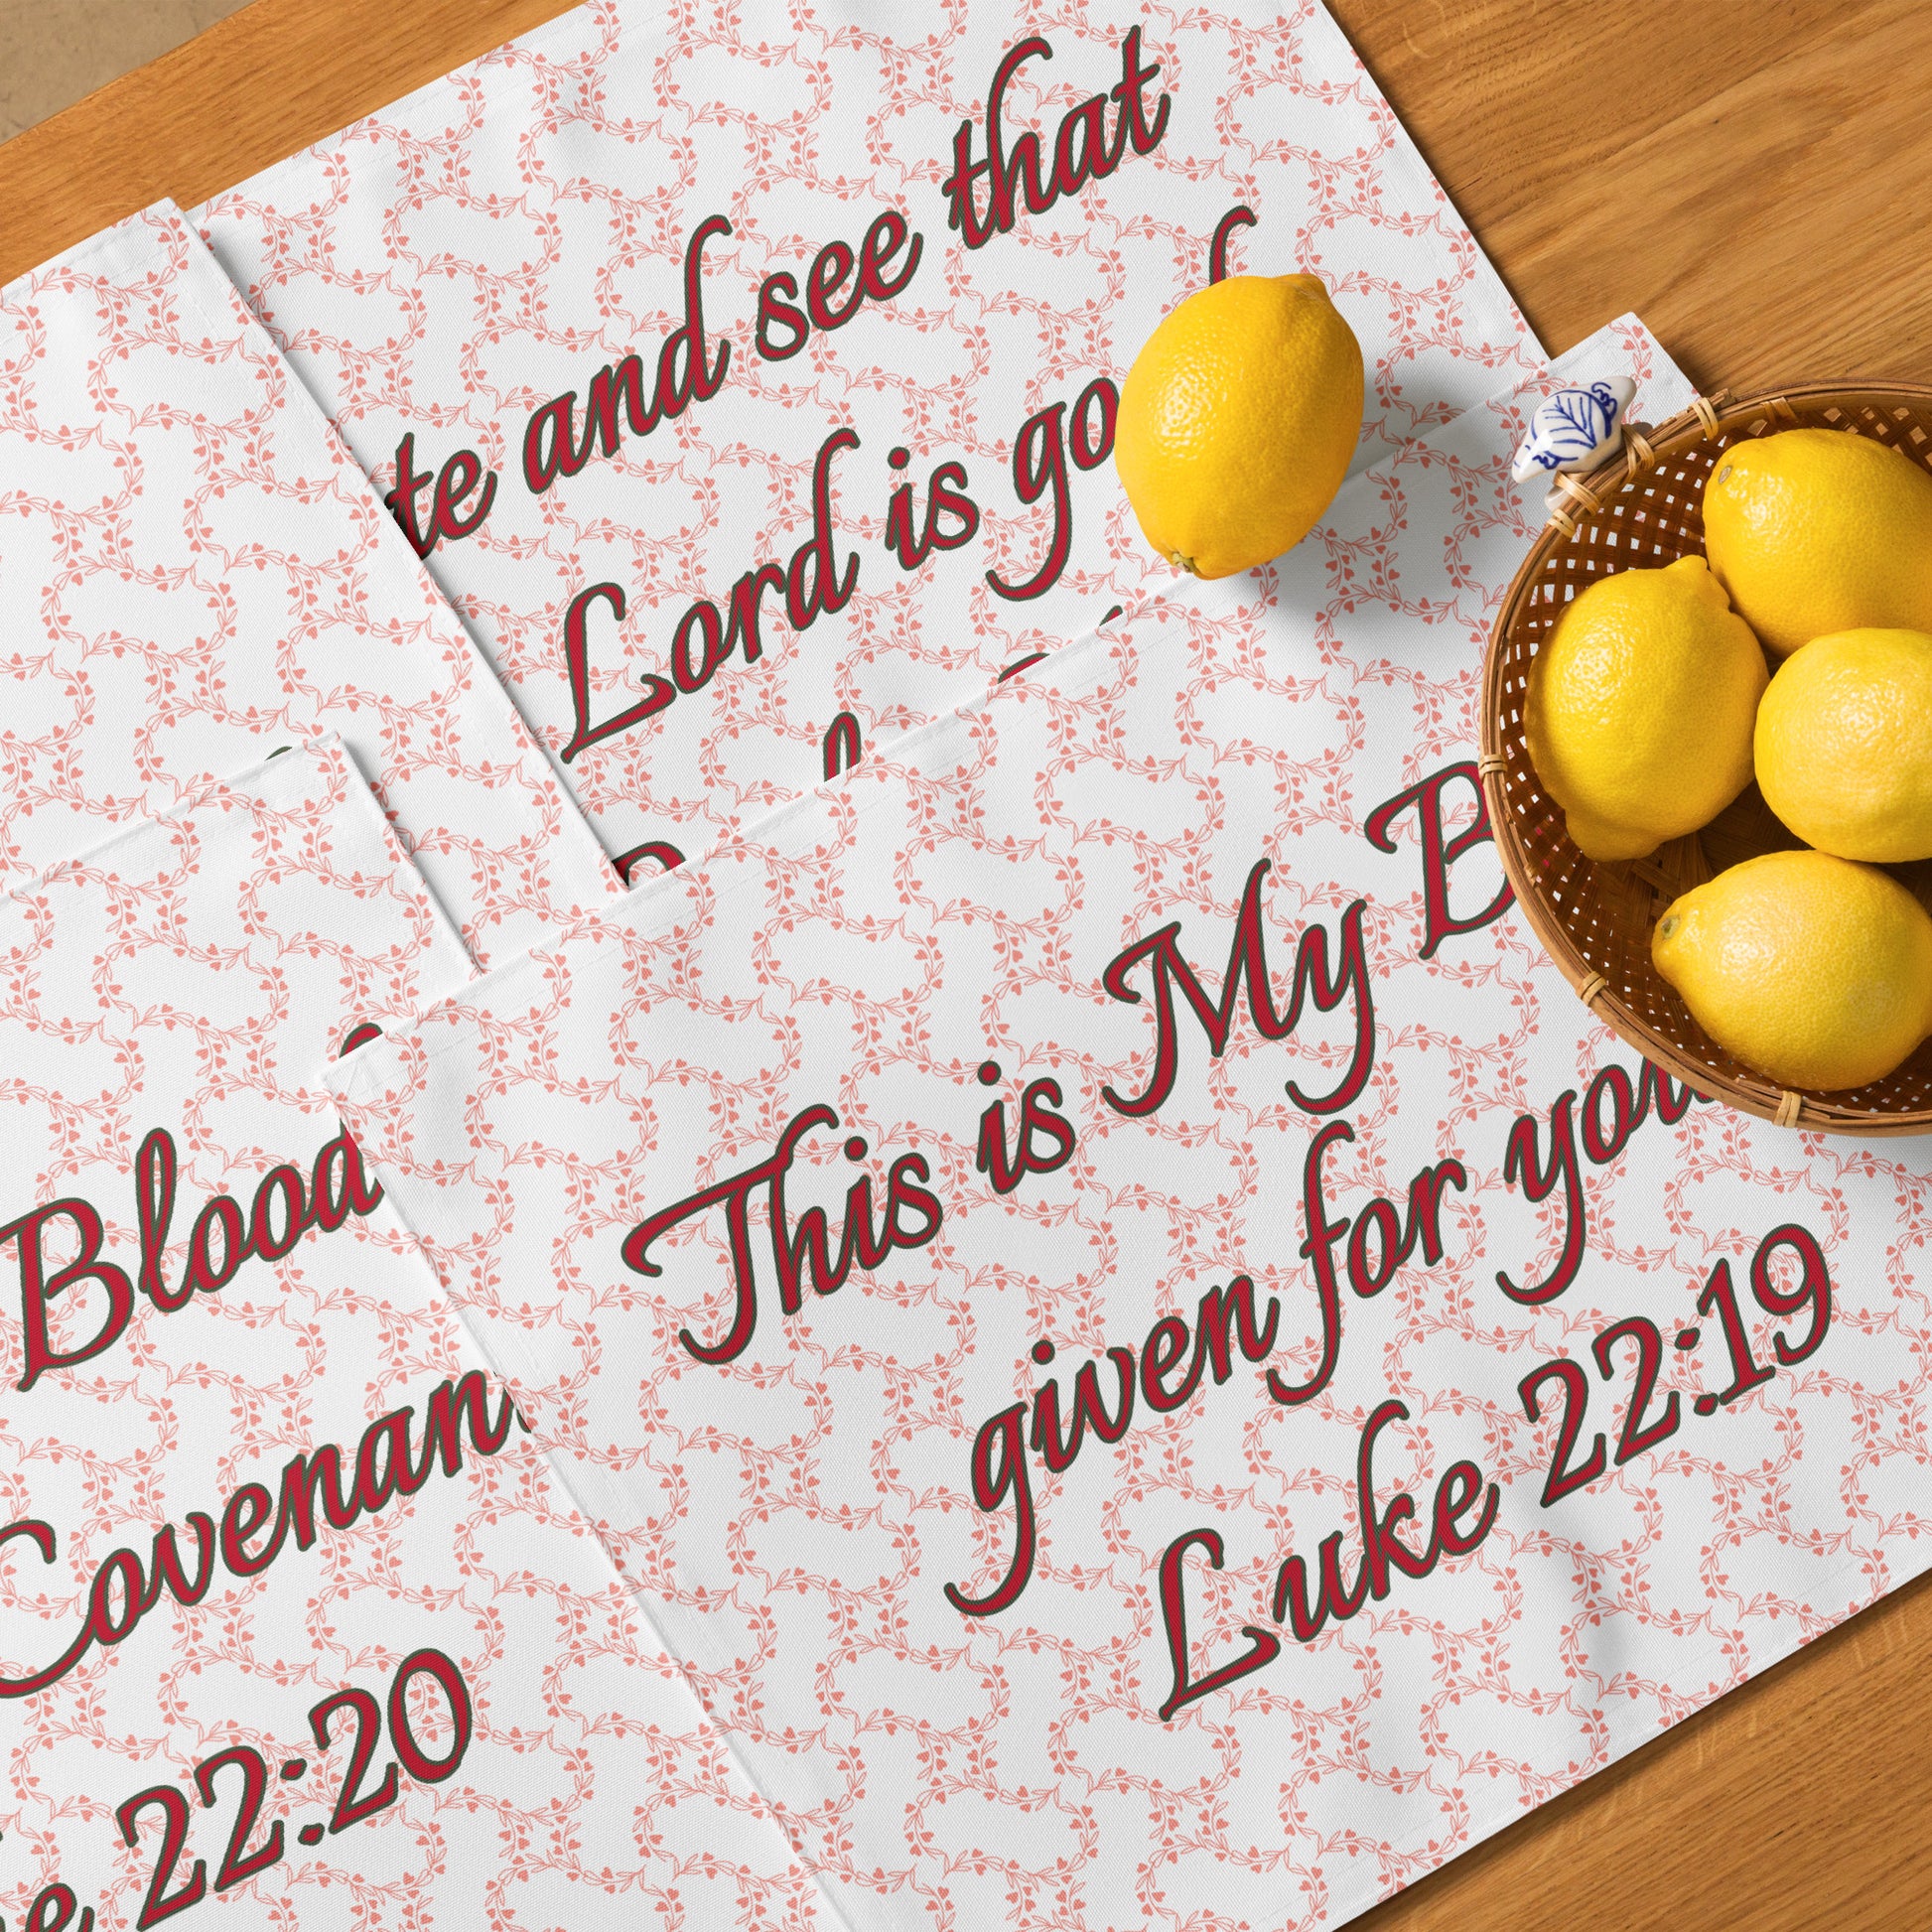 and see that
Lord is
Blood
Covenan
22:20
This is My
given for you
Luke 22:19